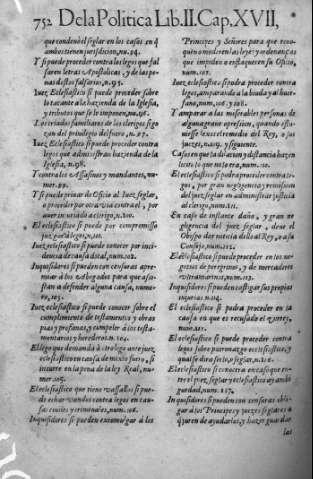 752 De la Politica Lib. II. Cap. XVII,
que condenò el seglar en los casos en q
ambos tienen jurisdicion, nu. 94.
Y si puede proceder contra los legos que fal
saren letras Apostolicas, y de las pe
nas destos falsarios, n. 95.
Iuez Eclesiastico si puede proceder sobre
lo tocante a la hazienda de la Iglesia,
y tributos que se le imponen, nu. 96.
Los criados familiares de los clerigos si go
zan del privilegio del fuero, n. 97.
Iuez Eclesiastico si puede proceder contra
legos que administran hazienda de la
Iglesia, n. 98.
Y contra los Assasinos y mandantes, nu-
mer. 99.
Y si puede privar de Oficio al Iuez seglar,
o proceder por otra via contra el, por
aver injuriado a clerigo, n. 100.
El eclesiastico si puede por compromisso
juzgar a legos, n. 101.
Iuez eclesiastico si puede conocer por inci
dencia de causa dotal, num. 102.
Inquisidores si pueden con censuras apre
miar a los Abogados para que assi-
stan a defender alguna causa, nume-
ro, 103.
Iuez eclesiastico si puede conocer sobre el
cumplimiento de testamento y obras
pias y profanas, y compeler a los testa-
mentarios y herederos n. 104.
El lego que demanda à otro lego ante juez
eclesiastico en causa de mixto fuero, si
incurre en la pena de la ley Real, nu-
mer. 105.
El eclesiastico que tiene vassallos si pue-
de echar vandos contra legos en cau-
sas civiles y criminales, num. 106.
Inquisidores si pueden excomulgar à los
Principes y Señores para que revo-
quen o modren las leyes y ordenanças
que impiden o enflaquecen su Oficio,
num. 107.
Iuez eclesiastico si podra proceder contra
legos, amparando a la biuda y al huer
fano, num. 108. y 108.
Y amparar a las miserables personas de
alguna grave opression, quando estu-
uiesse lexos el remedio del Rey, o sus
juezes, n. 109. y siguiente.
Casos en que la dilacion y distancia hazen
licito lo que no lo era, num. 110.
El eclesiastico si podra proceder contra le-
gos, por gran negligencia y remission
del juez seglar en administrar justicia
al clerigo, num. 111.
En caso de instante daño, y gran ne
gligencia del juez seglar, deve el
Obispo dar noticia dello al Rey, o a su
Consejo, num. 112.
El eclesiastico si puede proceder en los ne-
gocios de peregrinos, y de mercaderes
ultramarinos, num. 113.
Inquisidores si pueden castigar sus propias
injurias n. 114.
El eclesiastico si podra proceder en la
causa en que es recusado el juez,
num. 115.
El eclesiastico si puede proceder contra
legos sobre patronazgo eclesiastico, y
qual se dira serlo, o seglar, n. 116.
El eclesiastico si conocera en caso que en-
tre el juez, seglar y eclesiastico ay ambi
guedad, num. 117.
Inquisidores si pueden con censuras obli-
gar à los Principes y juezes seglares à
q juren de ayudarlos, y hazer guardar
las